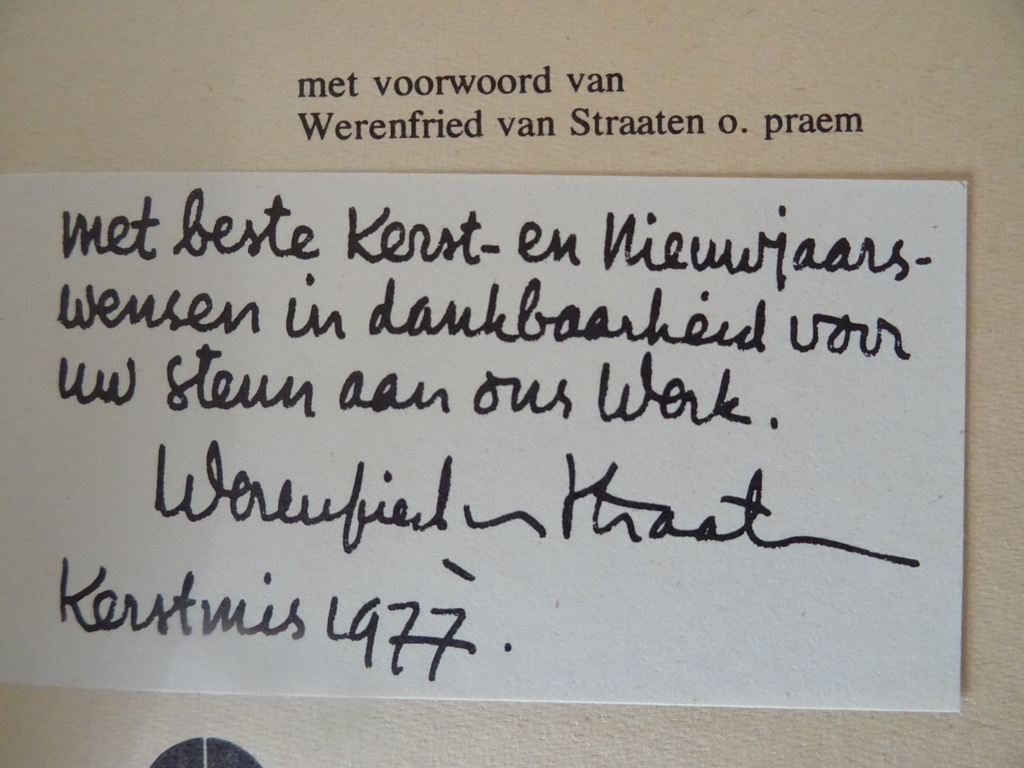 met voorwoord van
Werenfried van Straaten o. praem
met beste Kerst- en Nieuwjaars-
wensen in dankbaarheid voor
uw steun aan ons Werk.
Werenfried van Straaten
Kerstmis 1977.